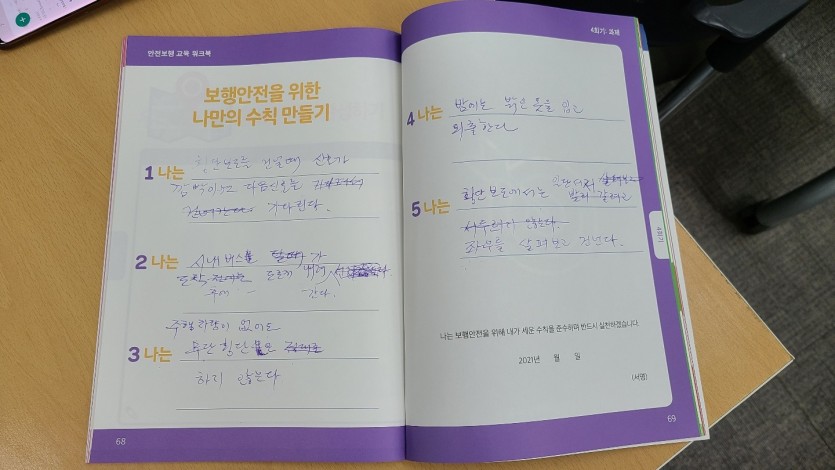 안전보행 교육 워크북
보행안전을 위한
나만의 수칙 만들기
1 나는 횡단보도를 건널때 신호가
깜박이고 다음신호를
기다린다.
2 나는 시내버스를 가
도착 도로
간다.
주행차량이 없어도
3 나는 무단횡단
하지 않는다
68
4회기: 과제
4 나는 밤에는 밝은 옷을 입고
외출한다
5 나는 횡단보도에서는 일단
서두르지 않는다.
좌우를 살펴보고 건넌다.
4회기
나는 보행안전을 위해 내가 세운 수칙을 준수하며 반드시 실천하겠습니다.
2021년 월 일
(서명)
69